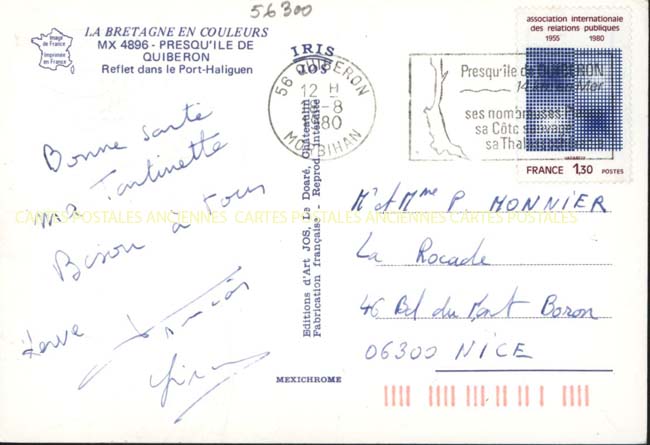 56300
LA BRETAGNE EN COULEURS
MX 4896 - PRESQU'ILE DE
QUIBERON
Reflet dans le Port-Haliguen
Image
de France
Imprimée
en France
IRIS
JOS
Editions d'Art JOS, Le Doaré, Châteaulin
Fabrication française - Reprod. interdite
MEXICHROME
56 QUIBERON
12 H
-8
1980
MORBIHAN
Presqu'île de QUIBERON
14 km en Mer
ses nombreuses
sa Côte sauvage
sa
association internationale
des relations publiques
1955 1980
FRANCE 1,30 POSTES
Bonne santé
ma Tantinette
Bisou à tous
CARTES POSTALES ANCIENNES CARTES POSTALES ANCIENNES CARTES POSTALES ANCIENNES
Mr & Mme P. MONNIER
La Rocade
46 Bd du Mont Boron
06300 NICE